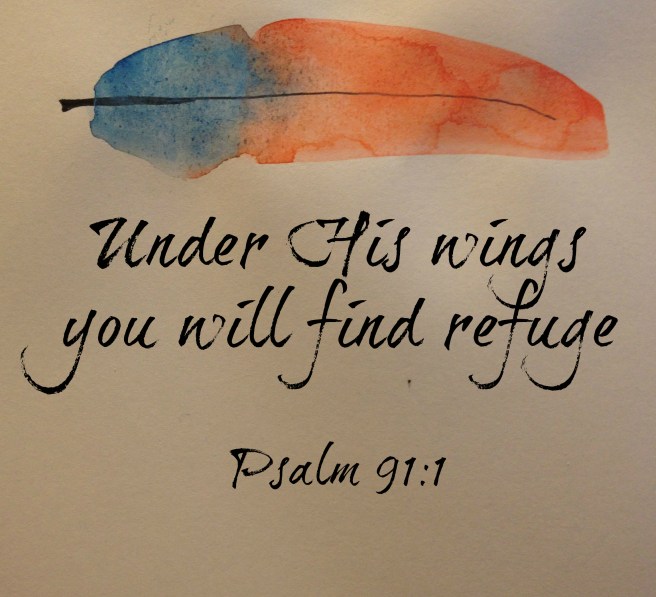 Under His wings
you will find refuge
Psalm 91:1